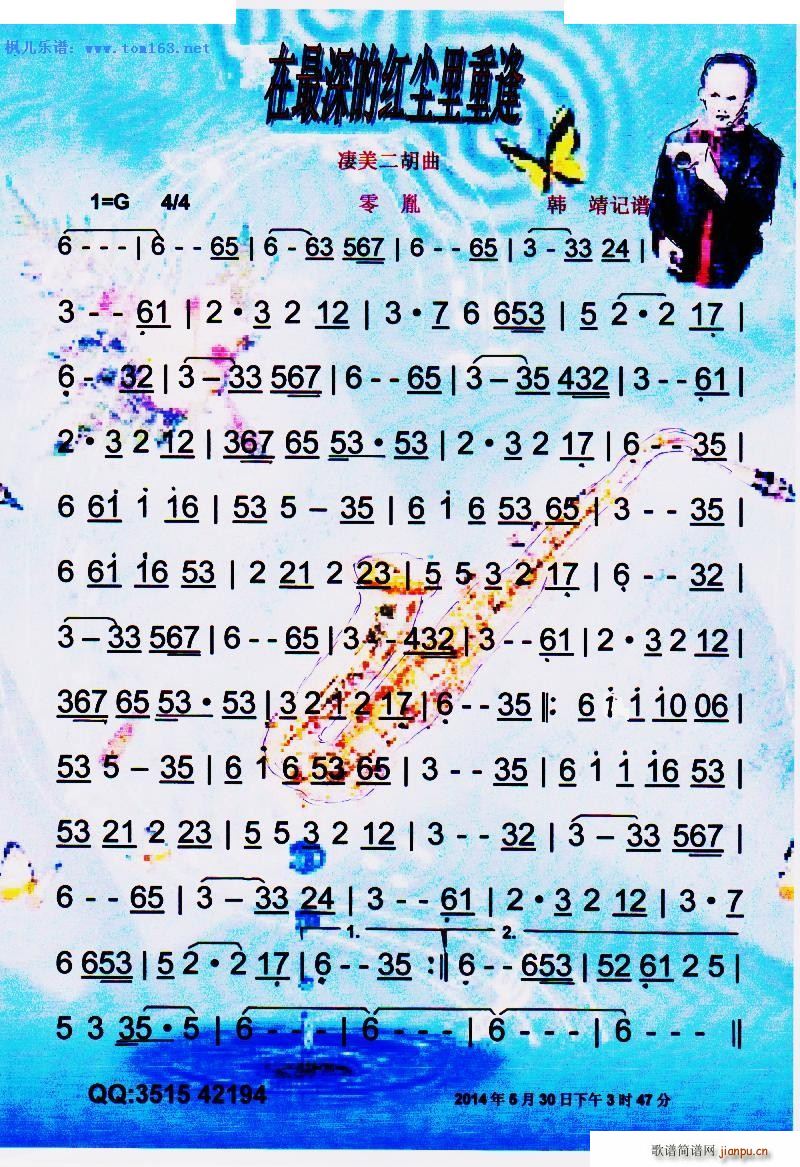 枫儿乐谱：www.tom163.net
在最深的红尘里重逢
凄美二胡曲
1=G 4/4 零 胤 韩 靖记谱
6 - - - | 6 - - 65 | 6 - 63 567 | 6 - - 65 | 3 - 33 24 |
3 - - 61 | 2 · 3 2 12 | 3 · 7 6 653 | 5 2 · 2 17 |
6 - - 32 | 3 – 33 567 | 6 - - 65 | 3 – 35 432 | 3 - - 61 |
2 · 3 2 12 | 367 65 53 · 53 | 2 · 3 2 17 | 6 - - 35 |
6 61 1 16 | 53 5 – 35 | 6 1 6 53 65 | 3 - - 35 |
6 61 16 53 | 2 21 2 23 | 5 5 3 2 17 | 6 - - 32 |
3 – 33 567 | 6 - - 65 | 3 - - 432 | 3 - - 61 | 2 · 3 2 12 |
367 65 53 · 53 | 3 2 1 2 17 | 6 - - 35 ‖: 6 1 1 10 06 |
53 5 – 35 | 6 1 6 53 65 | 3 - - 35 | 6 1 1 16 53 |
53 21 2 23 | 5 5 3 2 12 | 3 - - 32 | 3 – 33 567 |
6 - - 65 | 3 – 33 24 | 3 - - 61 | 2 · 3 2 12 | 3 · 7
1. 2.
6 653 | 5 2 · 2 17 | 6 - - 35 :‖ 6 - - 653 | 52 61 2 5 |
5 3 35 · 5 | 6 - - - | 6 - - - | 6 - - - | 6 - - - ‖
QQ:3515 42194 2014年5月30日下午3时47分
歌谱简谱网 jianpu.cn